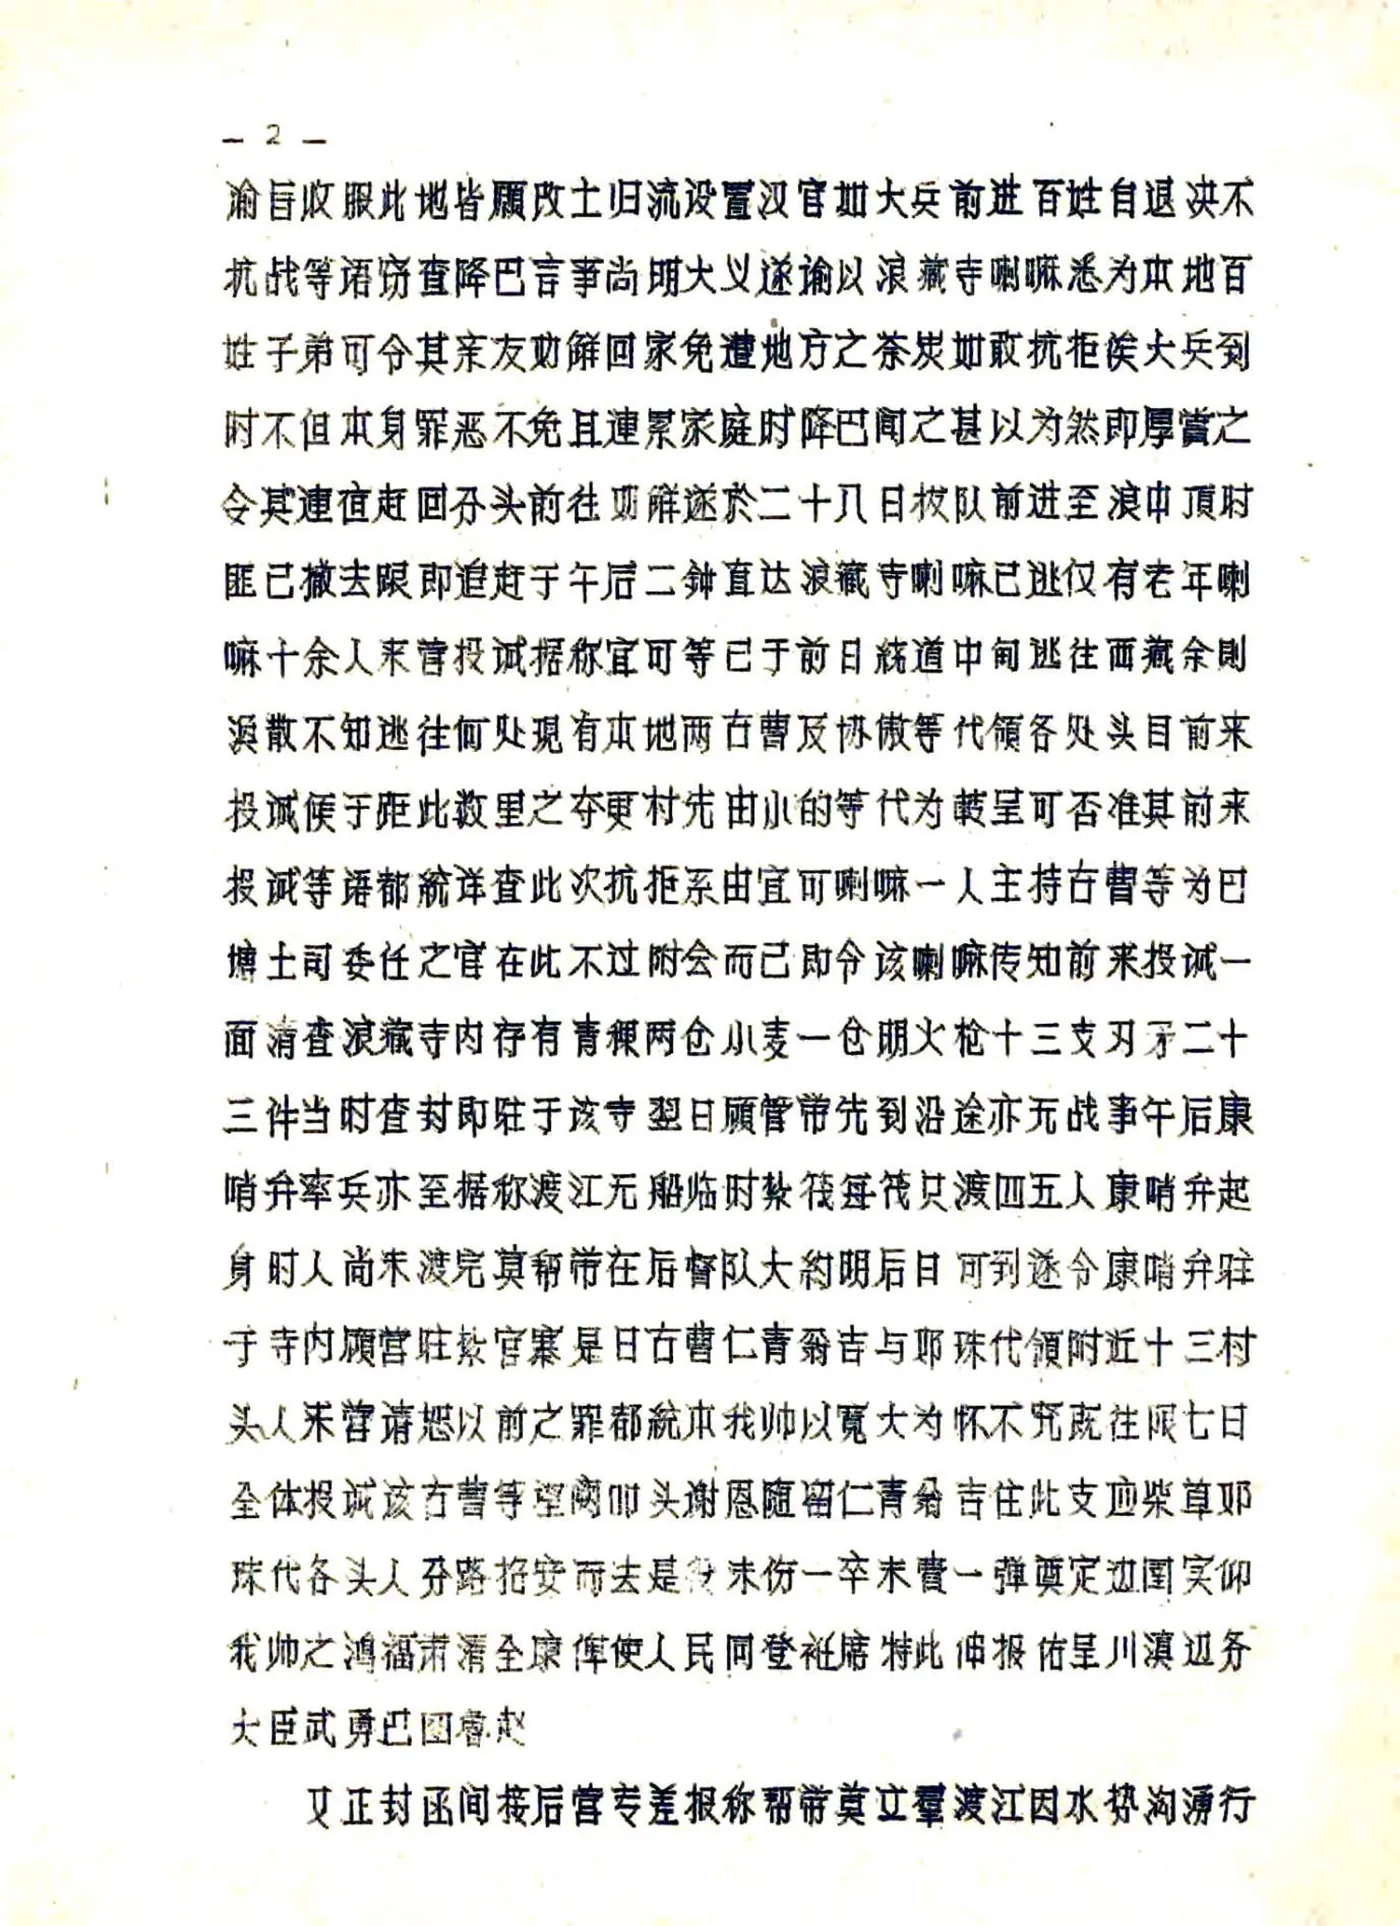 — 2 —
谕旨收服此地皆願改土归流设置汉官如大兵前进百姓自退决不
抗战等语窃查降巴言事尚明大义遂谕以浪藏寺喇嘛悉为本地百
姓子弟可令其亲友劝解回家免遭地方之荼炭如敢抗拒俟大兵到
时不但本身罪恶不免且連累家庭时降巴闻之甚以为然即厚賞之
令其連夜赶回分头前往劝解遂於二十八日拔队前进至浪中頂时
匪已撤去跟即追赶于午后二鈡直达浪藏寺喇嘛已逃仅有老年喇
嘛十余人来营投诚据称宜可等已于前日繞道中甸逃往西藏余則
浪散不知逃往何处現有本地两古曹及协傲等代領各处头目前来
投诚候于距此数里之夺更村先由小的等代为轉呈可否准其前来
投诚等语都統详查此次抗拒系由宜可喇嘛一人主持古曹等为巴
塘土司委任之官在此不过附会而已即令该喇嘛传知前来投诚一
面清查浪藏寺内存有青稞两仓小麦一仓明火枪十三支刃矛二十
三件当时查封即駐于该寺翌日顾管带先到沿途亦无战事午后康
哨弁率兵亦至据称渡江无船临时紮筏每筏只渡四五人康哨弁起
身时人尚未渡完莫帮带在后督队大約明后日可到遂令康哨弁駐
于寺内顾营駐紮官寨是日古曹仁青翁吉与邓珠代領附近十三村
头人来营请恕以前之罪都統本我帅以寬大为怀不咒既往限七日
全体投诚该古曹等望阙叩头谢恩随留仁青翁吉住此支应柴草邓
珠代各头人分路招安而去是役未伤一卒未費一弹奠定边圉实仰
我帅之鸿福肃清全康俾使人民同登衽席特此伸报佑呈川滇边务
大臣武勇巴图鲁赵
又正封函间接后营专差报称帮带莫立羣渡江因水势洶湧行